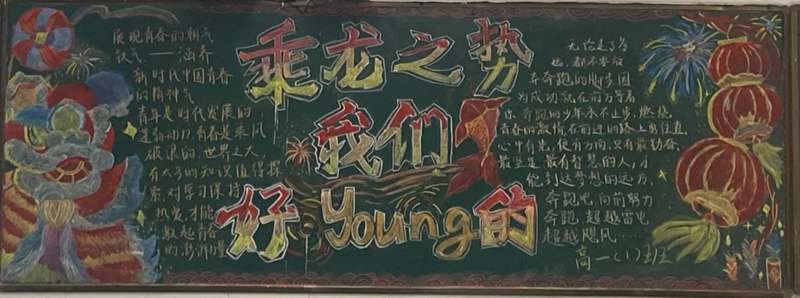 展现青春的朝气
锐气——涵养
新时代中国青春
的精神气
青年是时代发展的
是动力,青春是乘风
破浪的,世界之大
有太多的知识值得探
索,对学习保持
热爱,才能
激起青春
的澎湃力量
乘龙之势
我们
好Young的
无论是了多
远,都不要放
在奔跑的脚步,因
为成功就在前方等着
你,奔跑的少年永不止步,燃烧
青春的激情在前进的路上勇往直
心中有光,便有方向,只有最勤奋
最坚定,最有智慧的人,才
能到达梦想的远方,
奔跑吧,向前努力
奔跑,超越雷电
超越飓风
高一(1)班